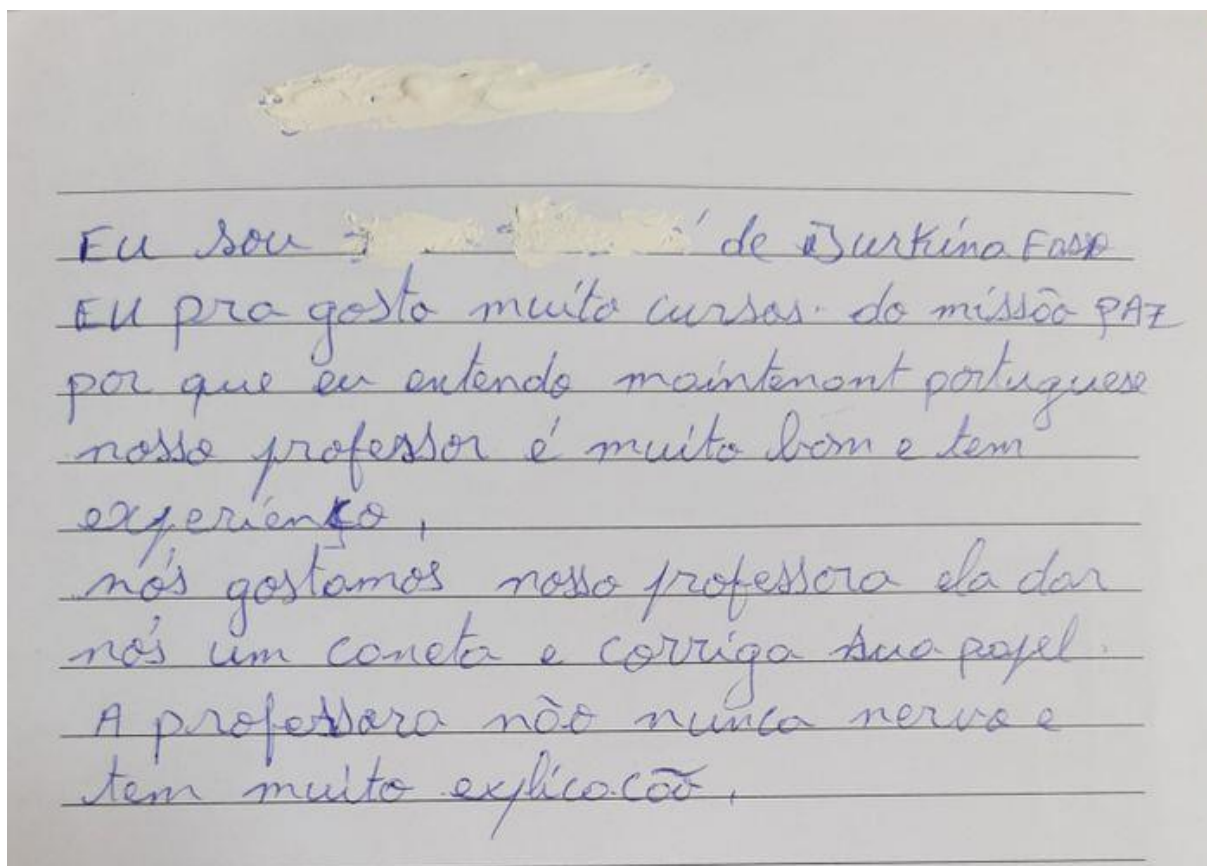 Eu sou de Burkina Faso
EU pra gosto muito cursos do missão PAZ
por que eu entendo maintenant portuguese
nosso professor é muito bom e tem
experienço,
nós gostamos nosso professora ela dar
nós um caneta e corriga sua papel.
A professora não nunca nervo e
tem muito explicacão.